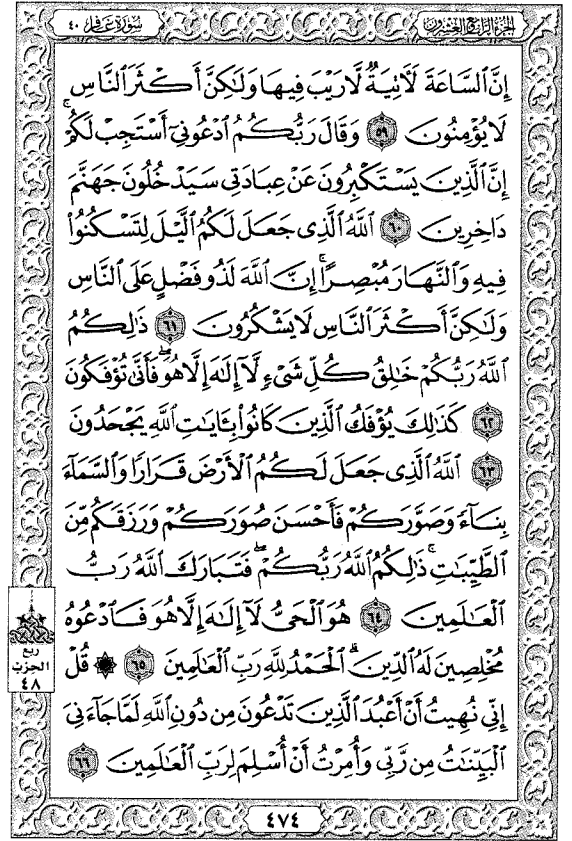 الجزء الرابع والعشرون
سورة غافر ٤٠
إِنَّ ٱلسَّاعَةَ لَأٓتِيَةٌ لَّا رَيْبَ فِيهَا وَلَٰكِنَّ أَكْثَرَ ٱلنَّاسِ
لَا يُؤْمِنُونَ ٥٩ وَقَالَ رَبُّكُمُ ٱدْعُونِىٓ أَسْتَجِبْ لَكُمْ ۚ
إِنَّ ٱلَّذِينَ يَسْتَكْبِرُونَ عَنْ عِبَادَتِى سَيَدْخُلُونَ جَهَنَّمَ
دَاخِرِينَ ٦٠ ٱللَّهُ ٱلَّذِى جَعَلَ لَكُمُ ٱلَّيْلَ لِتَسْكُنُوا۟
فِيهِ وَٱلنَّهَارَ مُبْصِرًا ۚ إِنَّ ٱللَّهَ لَذُو فَضْلٍ عَلَى ٱلنَّاسِ
وَلَٰكِنَّ أَكْثَرَ ٱلنَّاسِ لَا يَشْكُرُونَ ٦١ ذَٰلِكُمُ
ٱللَّهُ رَبُّكُمْ خَٰلِقُ كُلِّ شَىْءٍ لَّآ إِلَٰهَ إِلَّا هُوَ ۖ فَأَنَّىٰ تُؤْفَكُونَ
٦٢ كَذَٰلِكَ يُؤْفَكُ ٱلَّذِينَ كَانُوا۟ بِـَٔايَٰتِ ٱللَّهِ يَجْحَدُونَ
٦٣ ٱللَّهُ ٱلَّذِى جَعَلَ لَكُمُ ٱلْأَرْضَ قَرَارًا وَٱلسَّمَآءَ
بِنَآءً وَصَوَّرَكُمْ فَأَحْسَنَ صُوَرَكُمْ وَرَزَقَكُم مِّنَ
ٱلطَّيِّبَٰتِ ۚ ذَٰلِكُمُ ٱللَّهُ رَبُّكُمْ ۖ فَتَبَارَكَ ٱللَّهُ رَبُّ
ٱلْعَٰلَمِينَ ٦٤ هُوَ ٱلْحَىُّ لَآ إِلَٰهَ إِلَّا هُوَ فَٱدْعُوهُ
مُخْلِصِينَ لَهُ ٱلدِّينَ ۗ ٱلْحَمْدُ لِلَّهِ رَبِّ ٱلْعَٰلَمِينَ ٦٥ ۞ قُلْ
إِنِّى نُهِيتُ أَنْ أَعْبُدَ ٱلَّذِينَ تَدْعُونَ مِن دُونِ ٱللَّهِ لَمَّا جَآءَنِىَ
ٱلْبَيِّنَٰتُ مِن رَّبِّى وَأُمِرْتُ أَنْ أُسْلِمَ لِرَبِّ ٱلْعَٰلَمِينَ ٦٦
ربع
الحزب
٤٨
٤٧٤